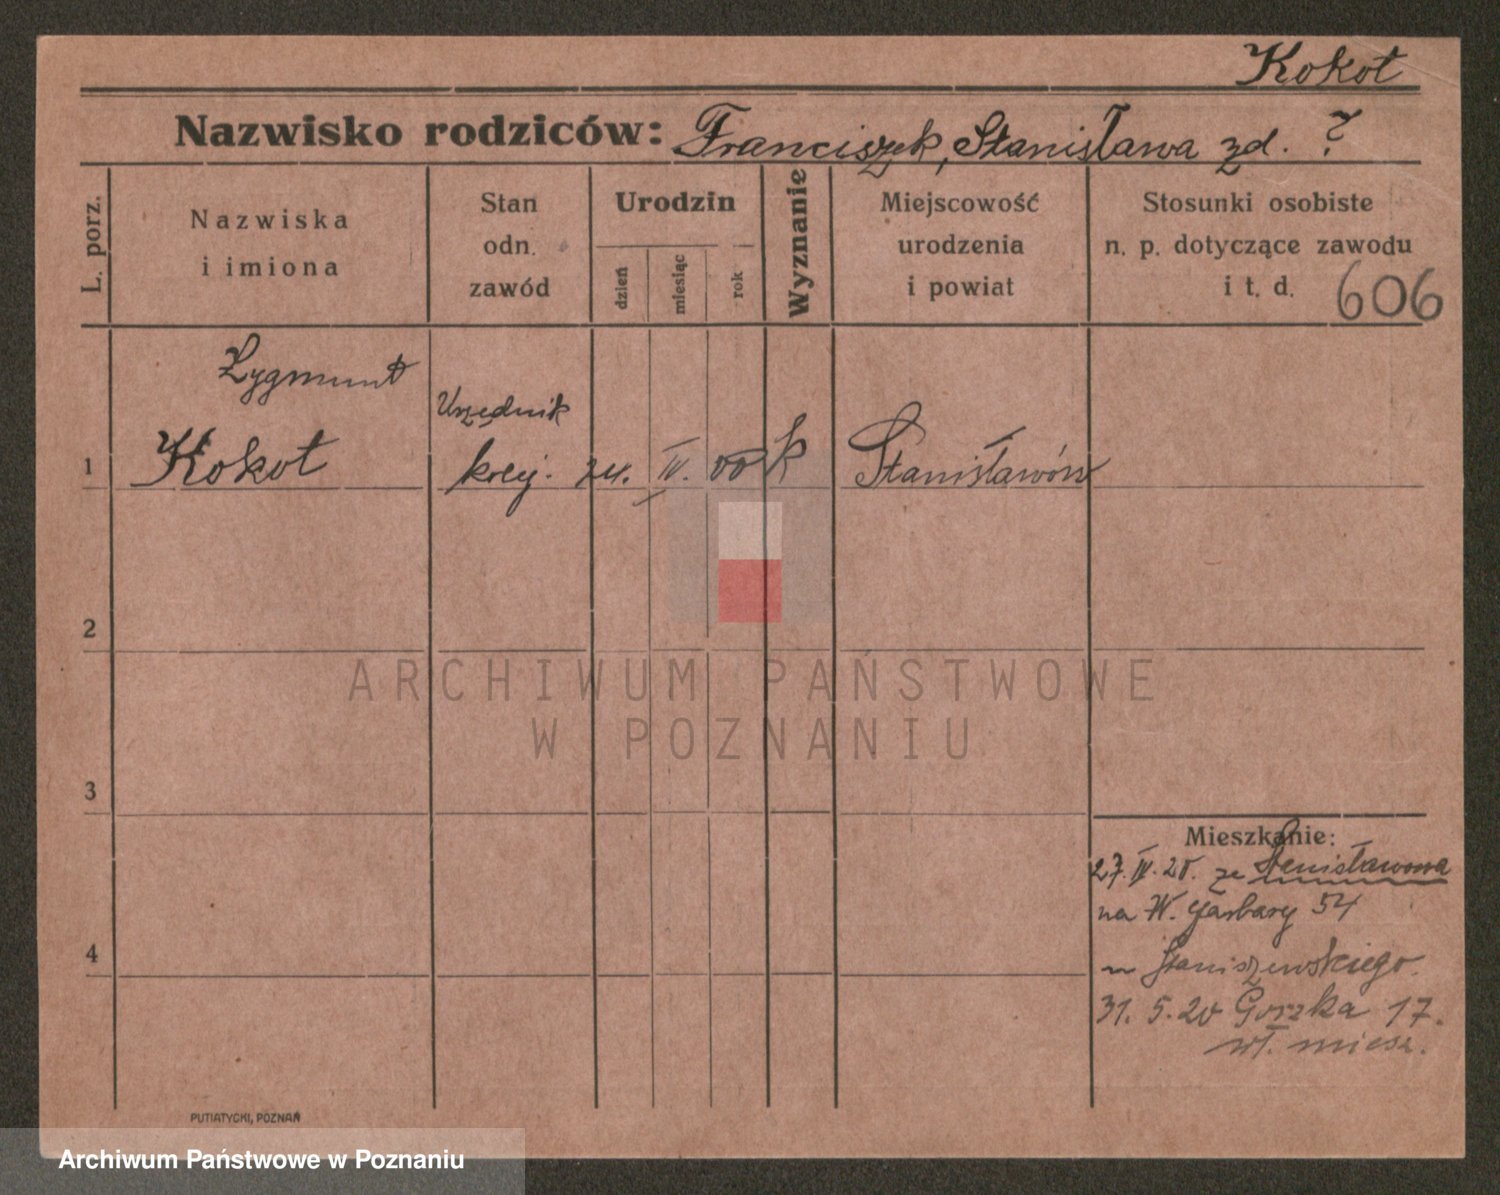 Kokot
Nazwisko rodziców: Franciszek, Stanisława zd. ?
L. porz.
Nazwiska
i imiona
Stan
odn.
zawód
Urodzin
dzień
miesiąc
rok
Wyznanie
Miejscowość
urodzenia
i powiat
Stosunki osobiste
n. p. dotyczące zawodu
i t. d.
606
Zygmunt
Urzędnik
1 Kokot kolej. 24. IV. 00 k Stanisławów
2
3
4
Mieszkanie:
27. IV. 20. ze Stanisławowa
na W. Garbary 54
Staniszewskiego
31. 5. 20 Gorzka 17.
wł. miesz.
PUTIATYCKI, POZNAŃ
ARCHIWUM PAŃSTWOWE
W POZNANIU
Archiwum Państwowe w Poznaniu